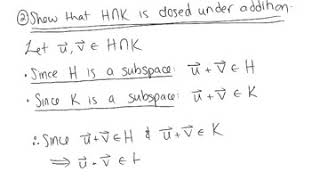 ② Show that H∩K is closed under addition.
Let u⃗, v⃗ ∈ H∩K
• Since H is a subspace: u⃗ + v⃗ ∈ H
• Since K is a subspace: u⃗ + v⃗ ∈ K
∴ Since u⃗+v⃗ ∈ H & u⃗+v⃗ ∈ K
⟹ u⃗ - v⃗ ∈